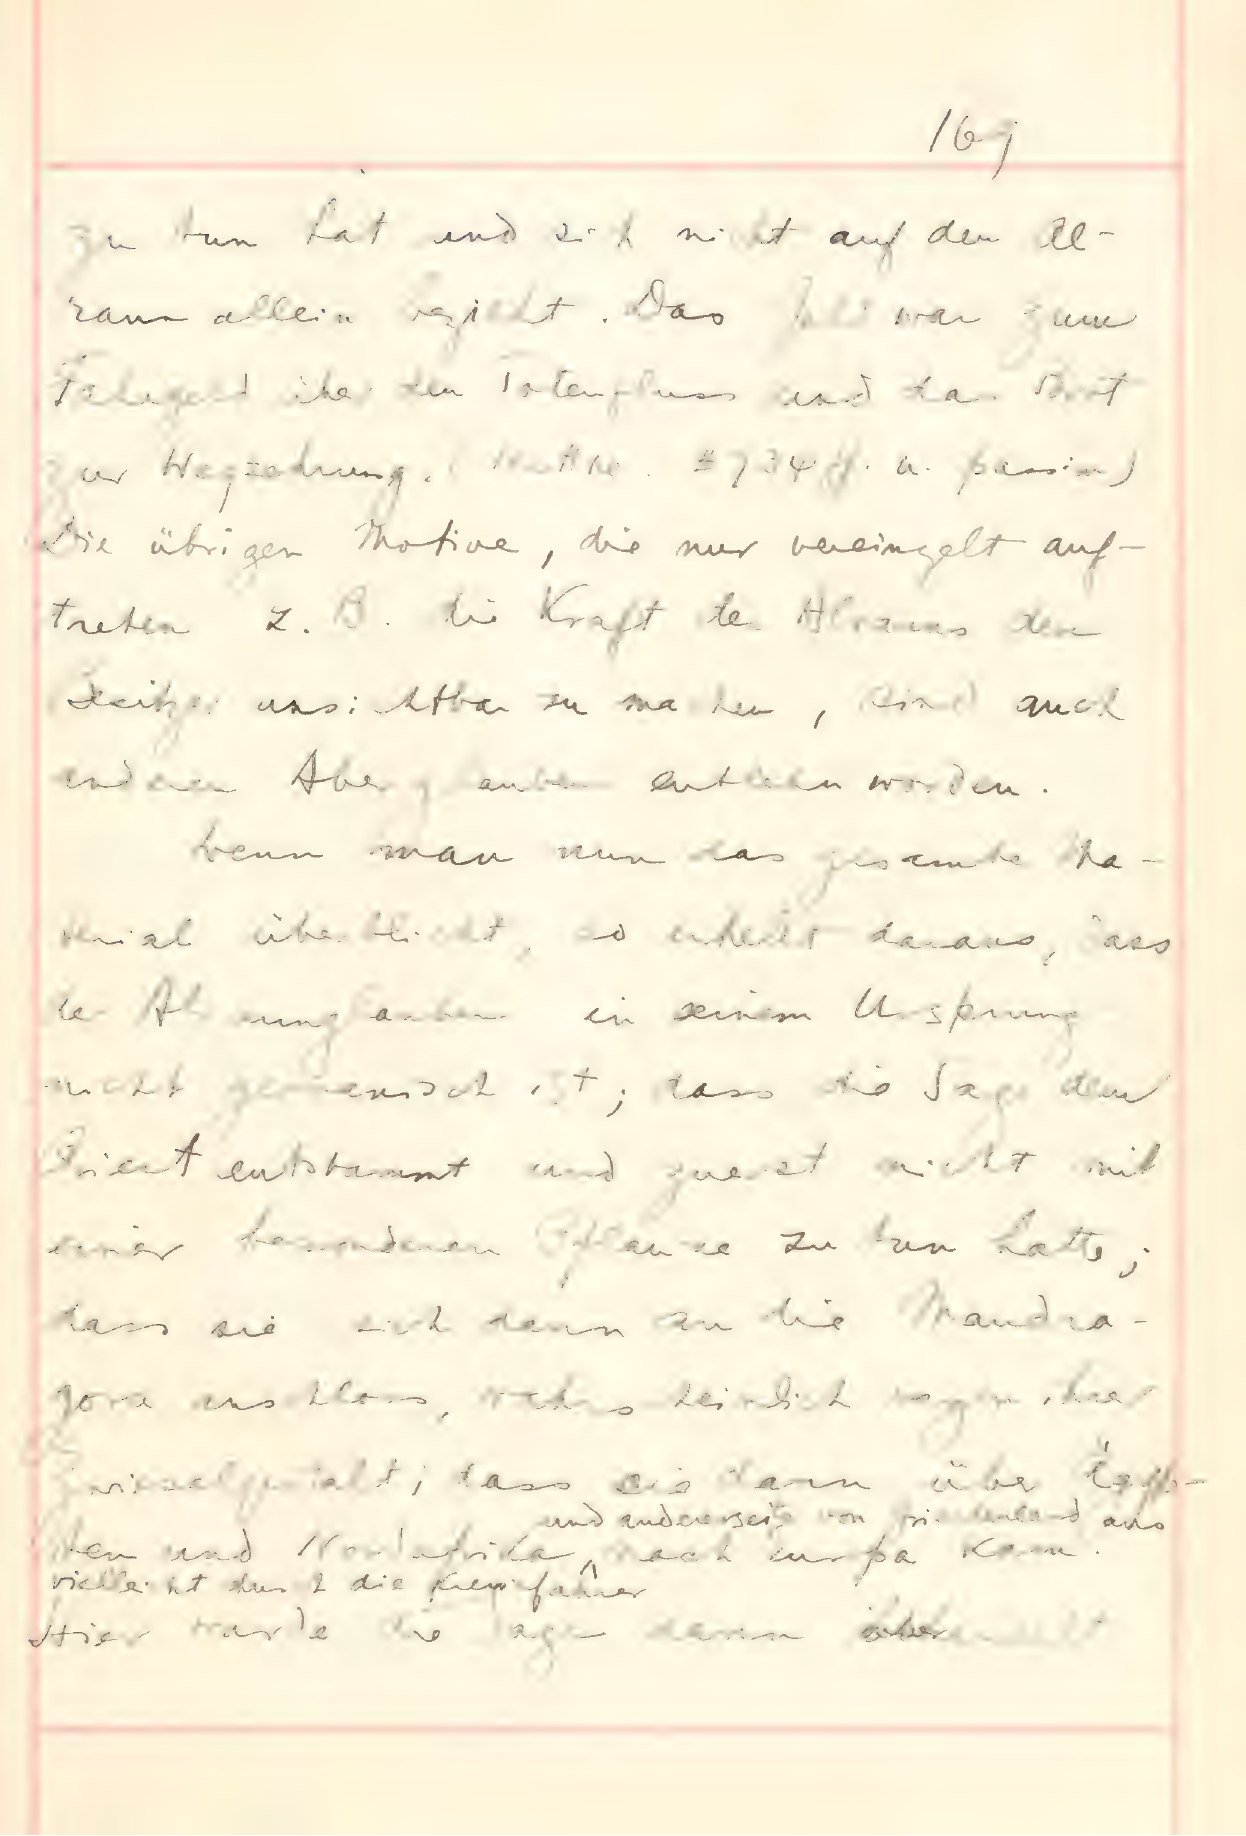 169
zu tun hat und sich nicht auf den Al-
raun allein bezieht. Das Geld war zum
Fahrgeld über den Totenfluss und das Brot
zur Wegzehrung. (Wuttke. § 734 ff. u. passim)
Die übrigen Motive, die nur vereinzelt auf-
treten z. B. die Kraft des Alrauns den
Besitzer unsichtbar zu machen, sind auch
anderen Aberglauben entlehn worden.
Wenn man nun das gesamte Ma-
terial überblickt, so erhellt daraus, dass
der Alraunglauben in seinem Ursprung
nicht germanisch ist; dass die Sage dem
Orient entstammt und zuerst nicht mit
einer besonderen Pflanze zu tun hatte;
dass sie sich dann an die Mandra-
gora anschloss, wahrscheinlich wegen ihrer
Zwieselgestalt; dass sie dann über Egyp-
und andererseits von Griechenland aus
ten und Nordafrika, nach Europa kam.
vielleicht durch die Kreuzfahrer
Hier wurde die Sage dann